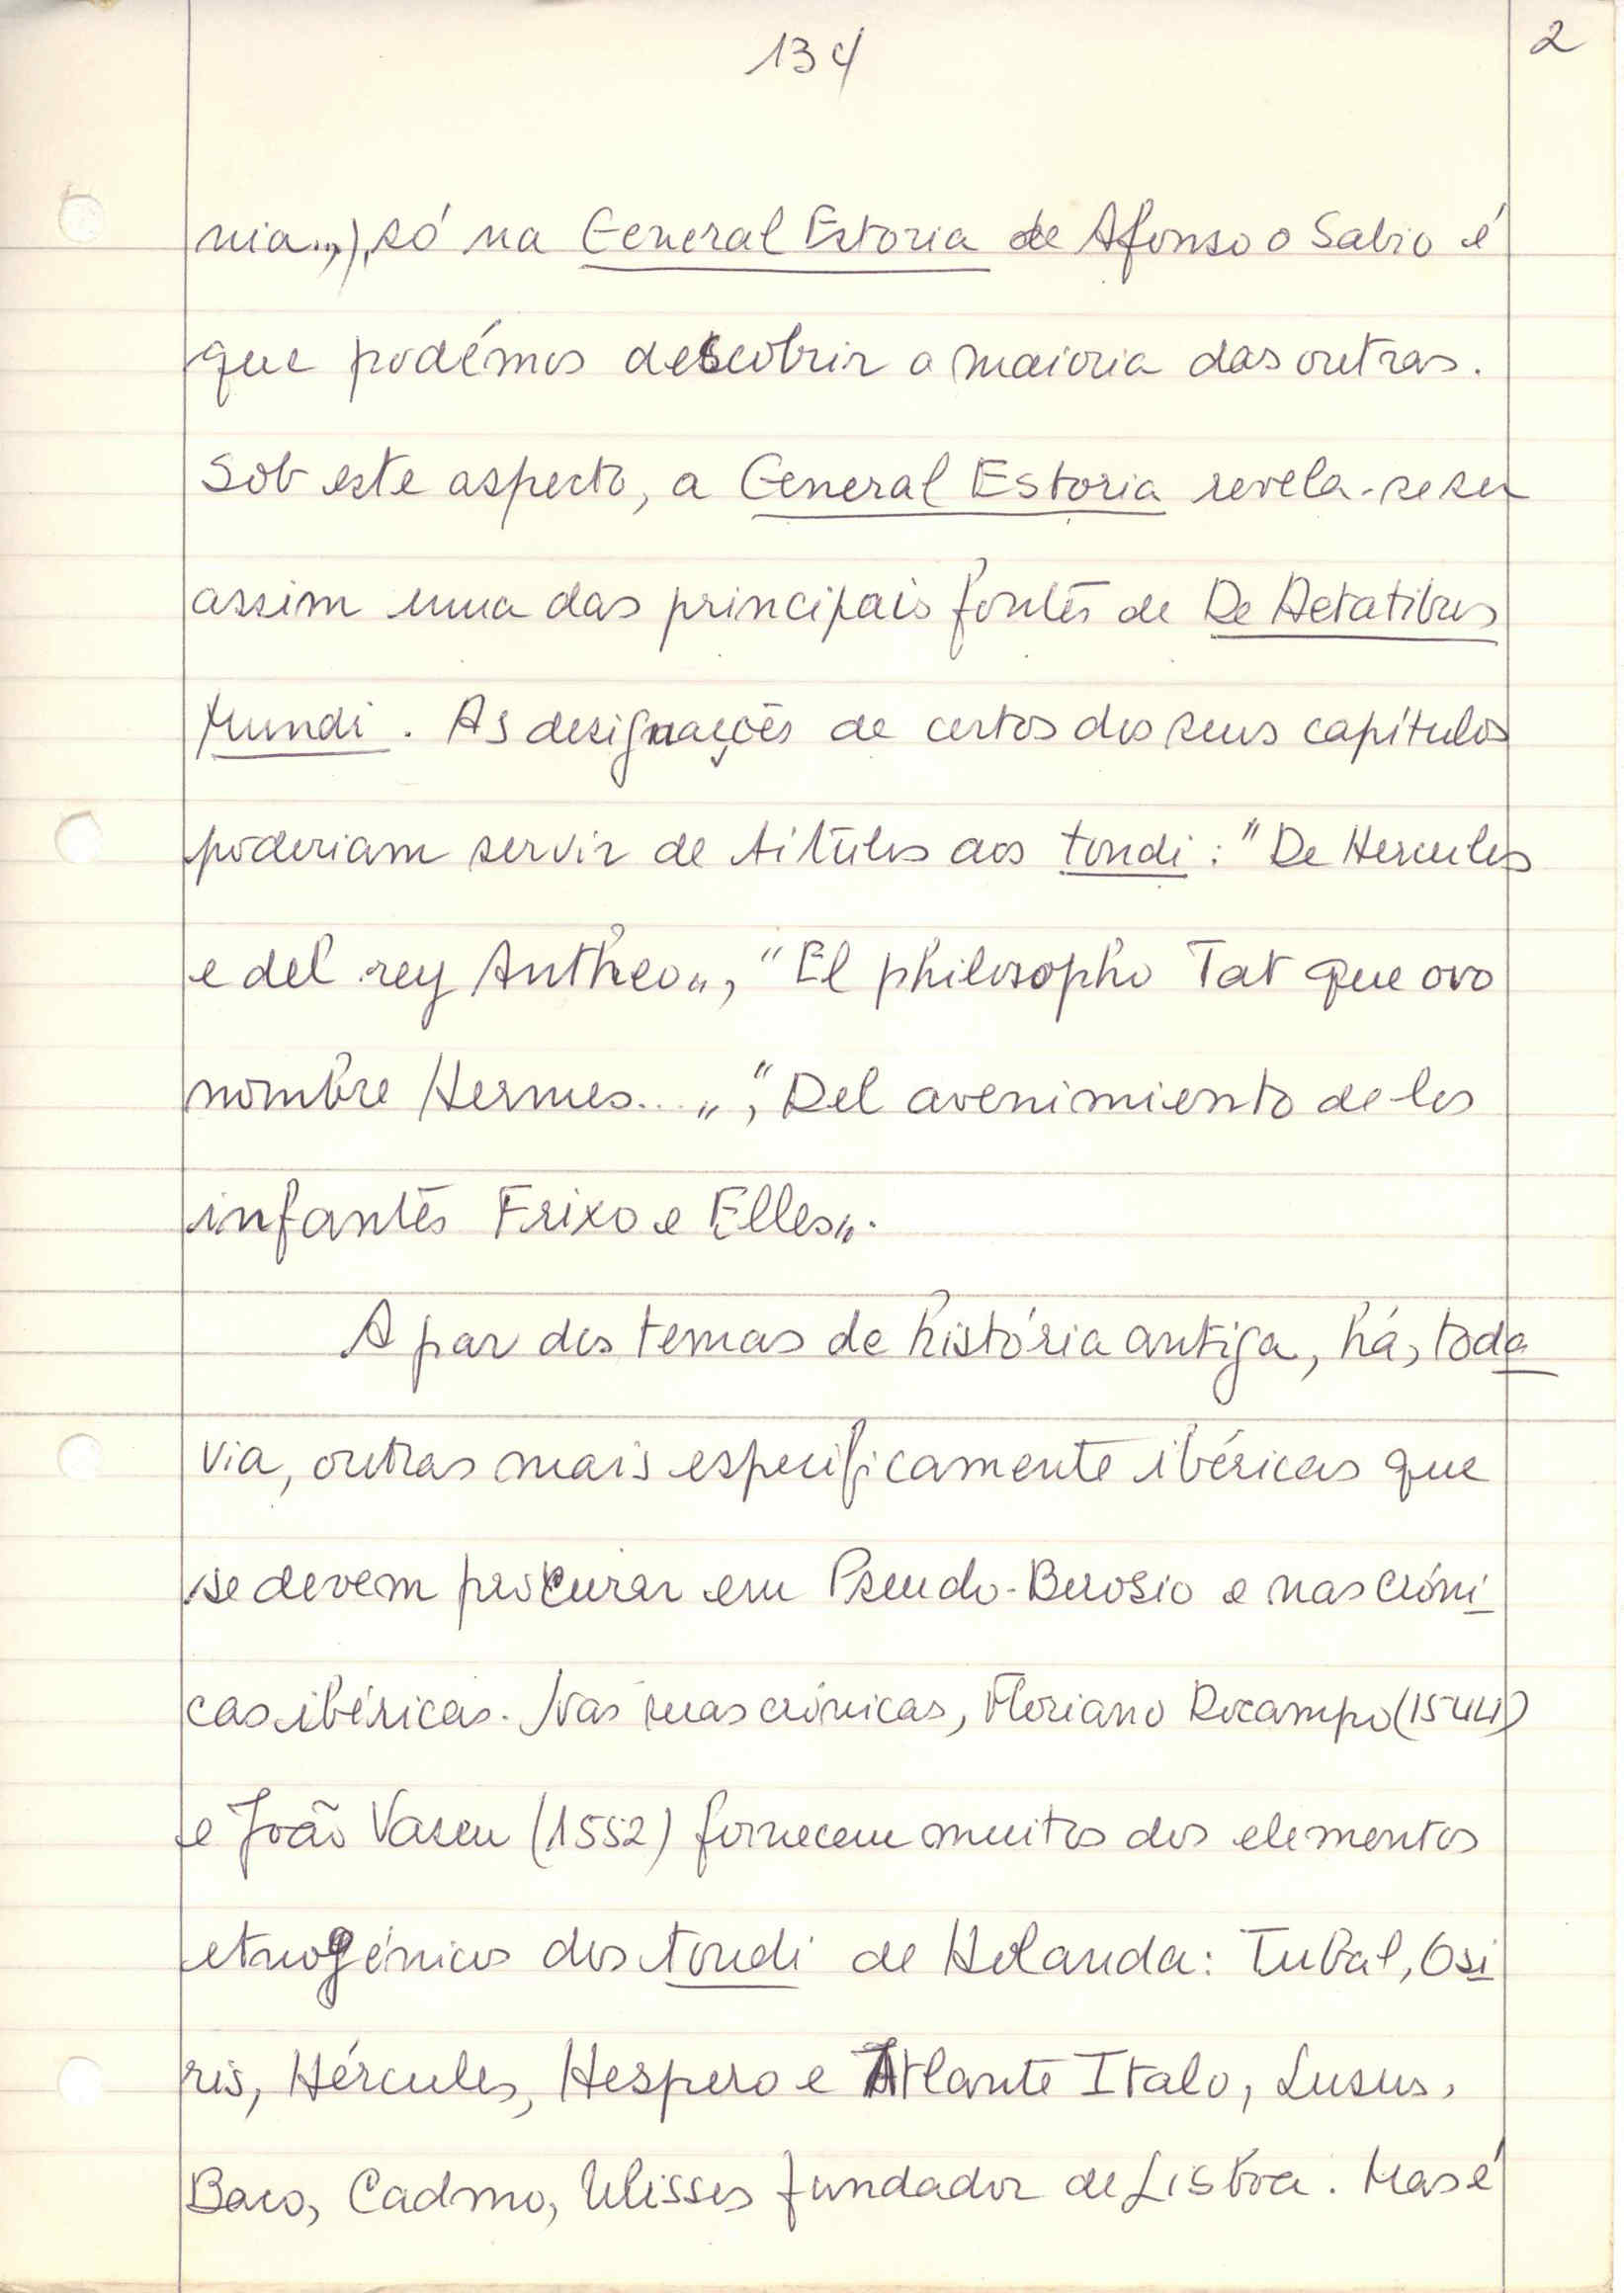 134
2
nia..,), só na General Estoria de Afonso o Sabio é
que podémos descobrir a maioria das outras.
Sob este aspecto, a General Estoria revela-se ser
assim uma das principais fontes de De Aetatibus
Mundi. As designações de certos dos seus capítulos
poderiam servir de titulos aos tondi: "De Hercules
e del rey Antheo", "El philosopho Tat que ovo
nombre Hermes...", "Del avenimiento de los
infantes Frixo e Elles".
A par dos temas de história antiga, há, toda
via, outras mais especificamente ibéricas que
se devem procurar em Pseudo-Berosio e nas cróni
cas ibéricas. Nas suas crónicas, Floriano Docampo (1544)
e João Vaseu (1552) fornecem muitos dos elementos
etnogénicos dos tondi de Holanda: Tubal, Osi
ris, Hércules, Hespero e Atlante Italo, Lusus,
Baco, Cadmo, Ulisses fundador de Lisboa. Mas é